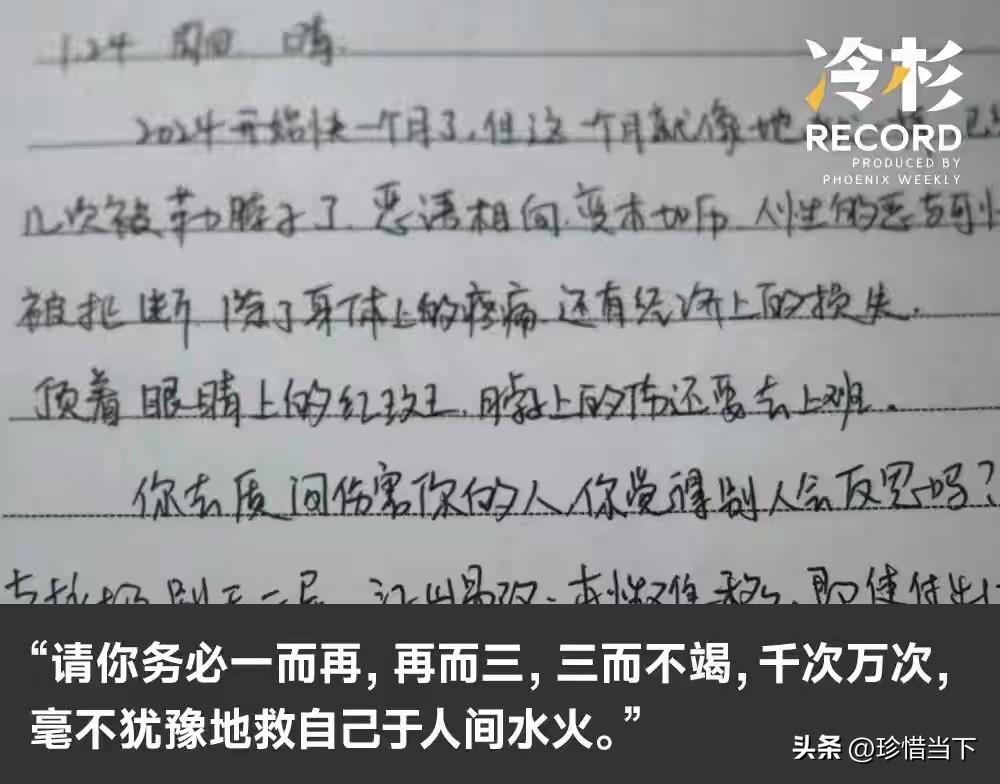 1.24 周四 晴.
冷杉
RECORD
PRODUCED BY
PHOENIX WEEKLY
2024开始快一个月了,但这一个月就像地
几次被勒脖子了,恶语相向,变本加厉,人性的恶与
被扯断,除了身体上的疼痛,还有经济上的损失.
顶着眼睛上的红 脖子上的伤还要去上班.
你去质问伤害你的人,你觉得别人会反思吗?
江山易改,本性难移, 即使付出
“请你务必一而再,再而三,三而不竭,千次万次,
毫不犹豫地救自己于人间水火。”
头条 @珍惜当下